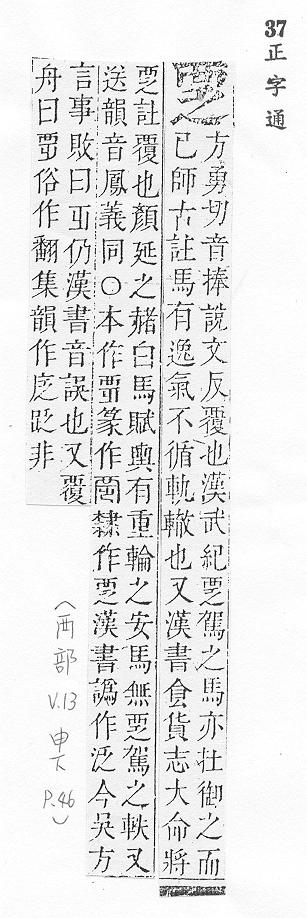 37正字通
覂
方勇切音捧說文反覆也漢武紀覂駕之馬亦在御之而
已師古註馬有逸氣不循軌轍也又漢書食貨志大命將
覂註覆也顏延之赭白馬賦輿有重輪之安馬無覂駕之軼又
送韻音鳳義同○本作覂篆作隸作覂漢書譌作泛今吳方
言事敗曰仍漢書音誤也又覆
舟曰覂俗作翻集韻作非
(襾部 V.13 申下 P.46)